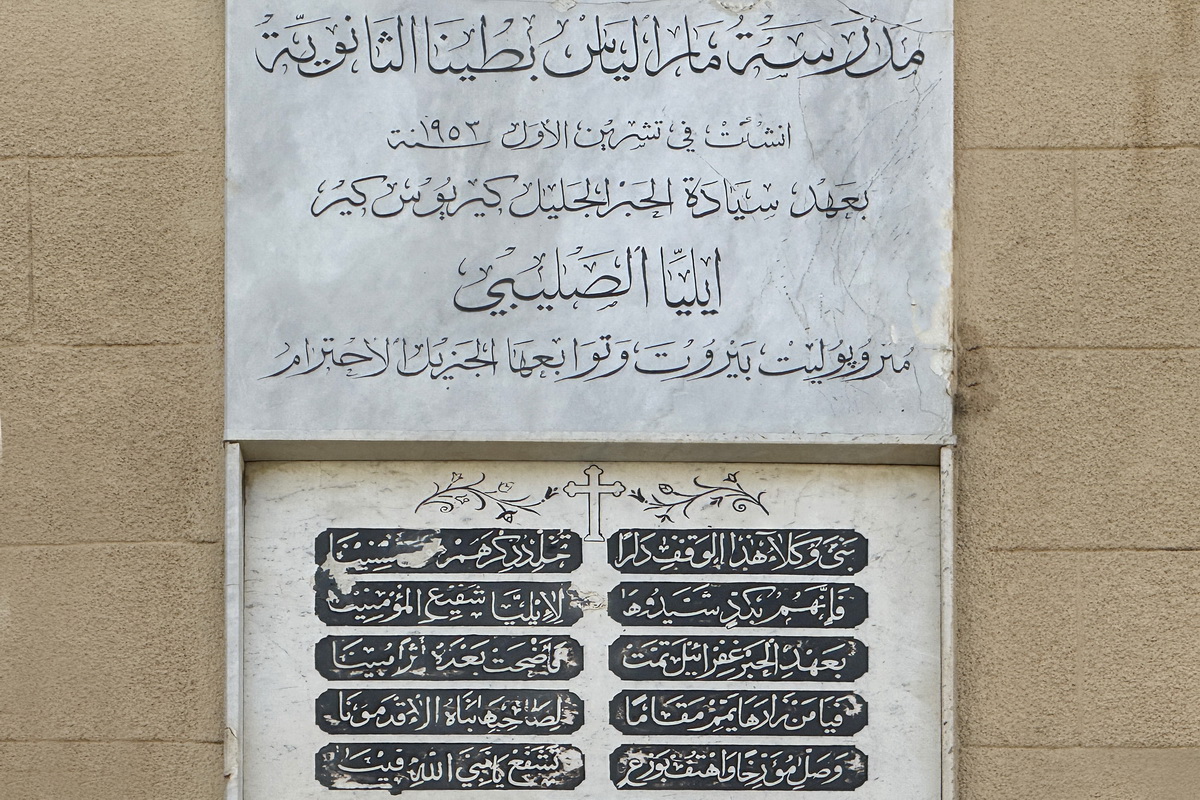 مدرسة مار الياس بطينا الثانوية
انشئت في تشرين الاول سنة ١٩٥٣
بعهد سيادة الحبر الجليل كيريوس كير
ايليّا الصليبي
متروبوليت بيروت وتوابعها الجزيل الاحترام
بنى وكلاء هذا الوقف دارًا خلد ذكرهم
فإنهم بكدٍ شيدوها لإيليّا شفيع المؤمنين
بعهد الحبر غفرائيل تمت فأضحت بعده مبينا
فيا من زارها يمم مقامًا لصاحبها بناه الاقدمونا
وصل مؤرخًا واهتف بورع تشفع يا نبي الله فينا